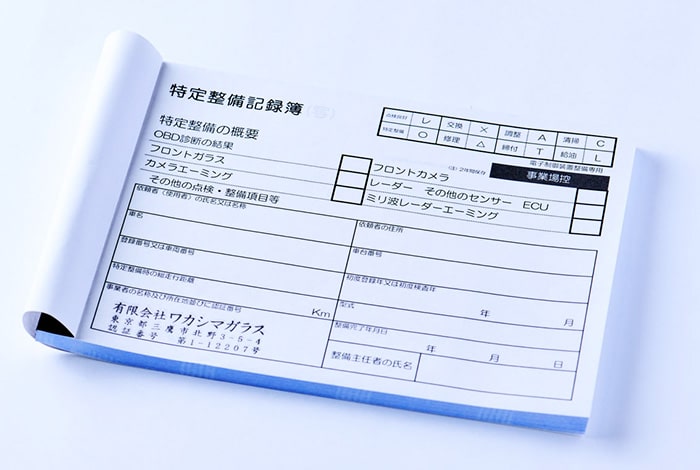 特定整備記録簿
点検良好 レ 交換 × 調整 A 清掃 C
特定整備 O 修理 △ 締付 T 給油 L
特定整備の概要
(注) 2年間保存 電子制御装置整備専用
OBD診断の結果
事業場控
フロントガラス フロントカメラ
カメラエーミング レーダー その他のセンサー ECU
その他の点検・整備項目等 ミリ波レーダーエーミング
依頼者(使用者)の氏名又は名称 依頼者の住所
車名 車台番号
登録番号又は車両番号 初度登録年又は初度検査年
年 月
特定整備時の総走行距離 型式
Km
事業者の名称及び所在地並びに認証番号 整備完了年月日
年 月 日
有限会社ワカシマガラス
東京都三鷹市北野3-5-4
認証番号 第1-12207号
整備主任者の氏名